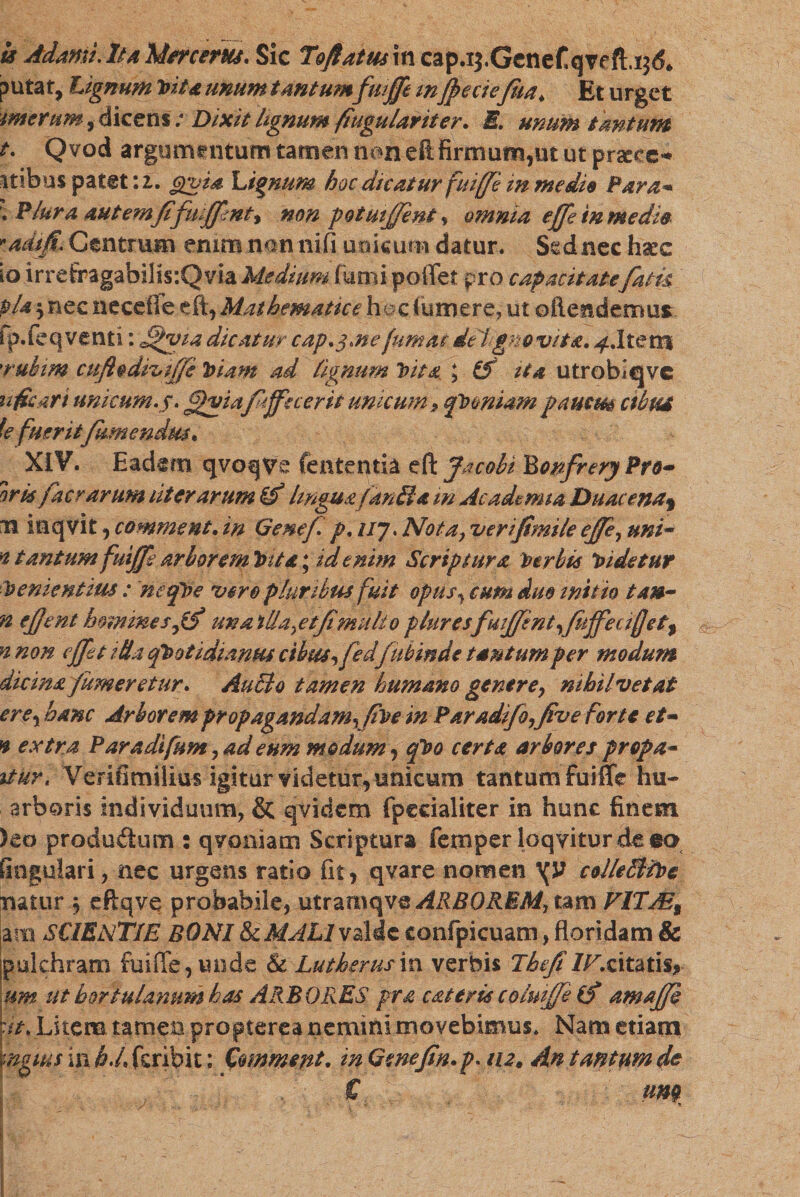 is Adami. Ita Mercerus. Sic Toſtatus in cap.13.Geneſ.qveſt.136.
putat, Lignum vitæ unum tantum fuiſſe in ſpecie ſua. Et urget
umerum, dicens: Dixit lignum ſingulariter. E. unum tantum
t. Qvod argumentum tamen non eſt firmum, ut ut præce-
atibus patet: 2. Qvia Lignum hoc dicatur fuiſſe in medio Para-
. Plura autem ſi fuiſſent, non potuiſſent, omnia eſſe in medio
radiſi. Centrum enim non niſi unicum datur. Sed nec hæc
io irrefragabilis: Qvia Medium ſumi poſſet pro capacitate ſatis
pla; nec neceſſe eſt, Mathematice hoc ſumere, ut oſtendemus
ſp. ſeqventi: Qvia dicatur cap.3. ne ſumat de lgno vitæ. 4. Item
rubim cuſtodiviſſe viam ad lignum vitæ ; & ita utrobiqve
ificari unicum. 5. Qvia ſuffecerit unicum, qvoniam paucus cibus
le fuerit ſumendus.
XIV. Eadem qvoqve ſententia eſt Jacobi Bonfrery Pro-
oris ſacrarum literarum & linguæ ſanctæ in Academia Duacena,
m inqvit, comment. in Geneſ. p. 117. Nota, veriſimile eſſe, uni-
n tantum fuiſſe arborem vitæ; id enim Scripturæ verbis videtur
venientius: neqve vero pluribus fuit opus, cum duo initio tan-
n eſſent homines, & una illa, etſi multo plures fuiſſent, ſuffeciſſet,
n non eſſet illa qvotidianus cibus, ſed ſubinde tantum per modum
dicinæ ſumeretur. Aucto tamen humano genere, nihil vetat
ere, hanc Arborem propagandam, ſive in Paradiſo, ſive forte et-
n extra Paradiſum, ad eum modum, qvo certæ arbores propa-
tur. Veriſimilius igitur videtur, unicum tantum fuiſſe hu-
arboris individuum, & qvidem ſpecialiter in hunc finem
Deo productum : qvoniam Scriptura ſemper loqvitur de eo
ſingulari, nec urgens ratio ſit, qvare nomen עץ collective
matur ; eſtqve probabile, utramqve ARBOREM, tam VITÆ,
am SCIENTIE BONI & MALI valde conſpicuam, floridam &
pulchram fuiſſe, unde & Lutherus in verbis Theſi IV. citatis,
um ut hortulanum has ARBORES præ cæteris coluiſſe & amaſſe
it. Litem tamen propterea nemini movebimus. Nam etiam
ingius in h.l. ſcribit: Comment. in Geneſin. p. 112. An tantum de
C uno